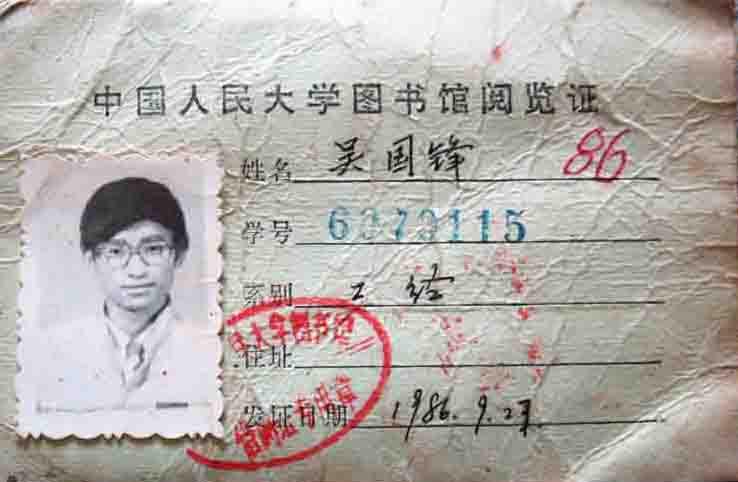 中国人民大学图书馆阅览证
姓名 吴国锋 86
学号 6373115
系别 工经
住址
发证日期 1986.9.27
大学图书馆